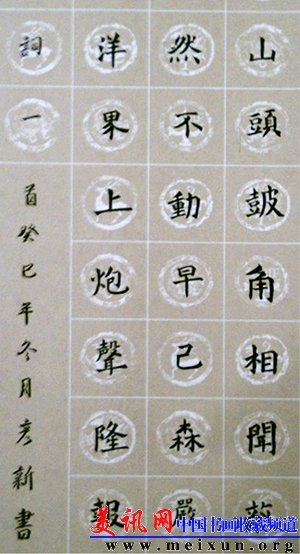 山頭皷角相聞敵
然不動早已森嚴
洋界上炮聲隆報
詞一
首癸巳年冬月彦新書
美讯网 中国书画收藏频道
www.meixun.org